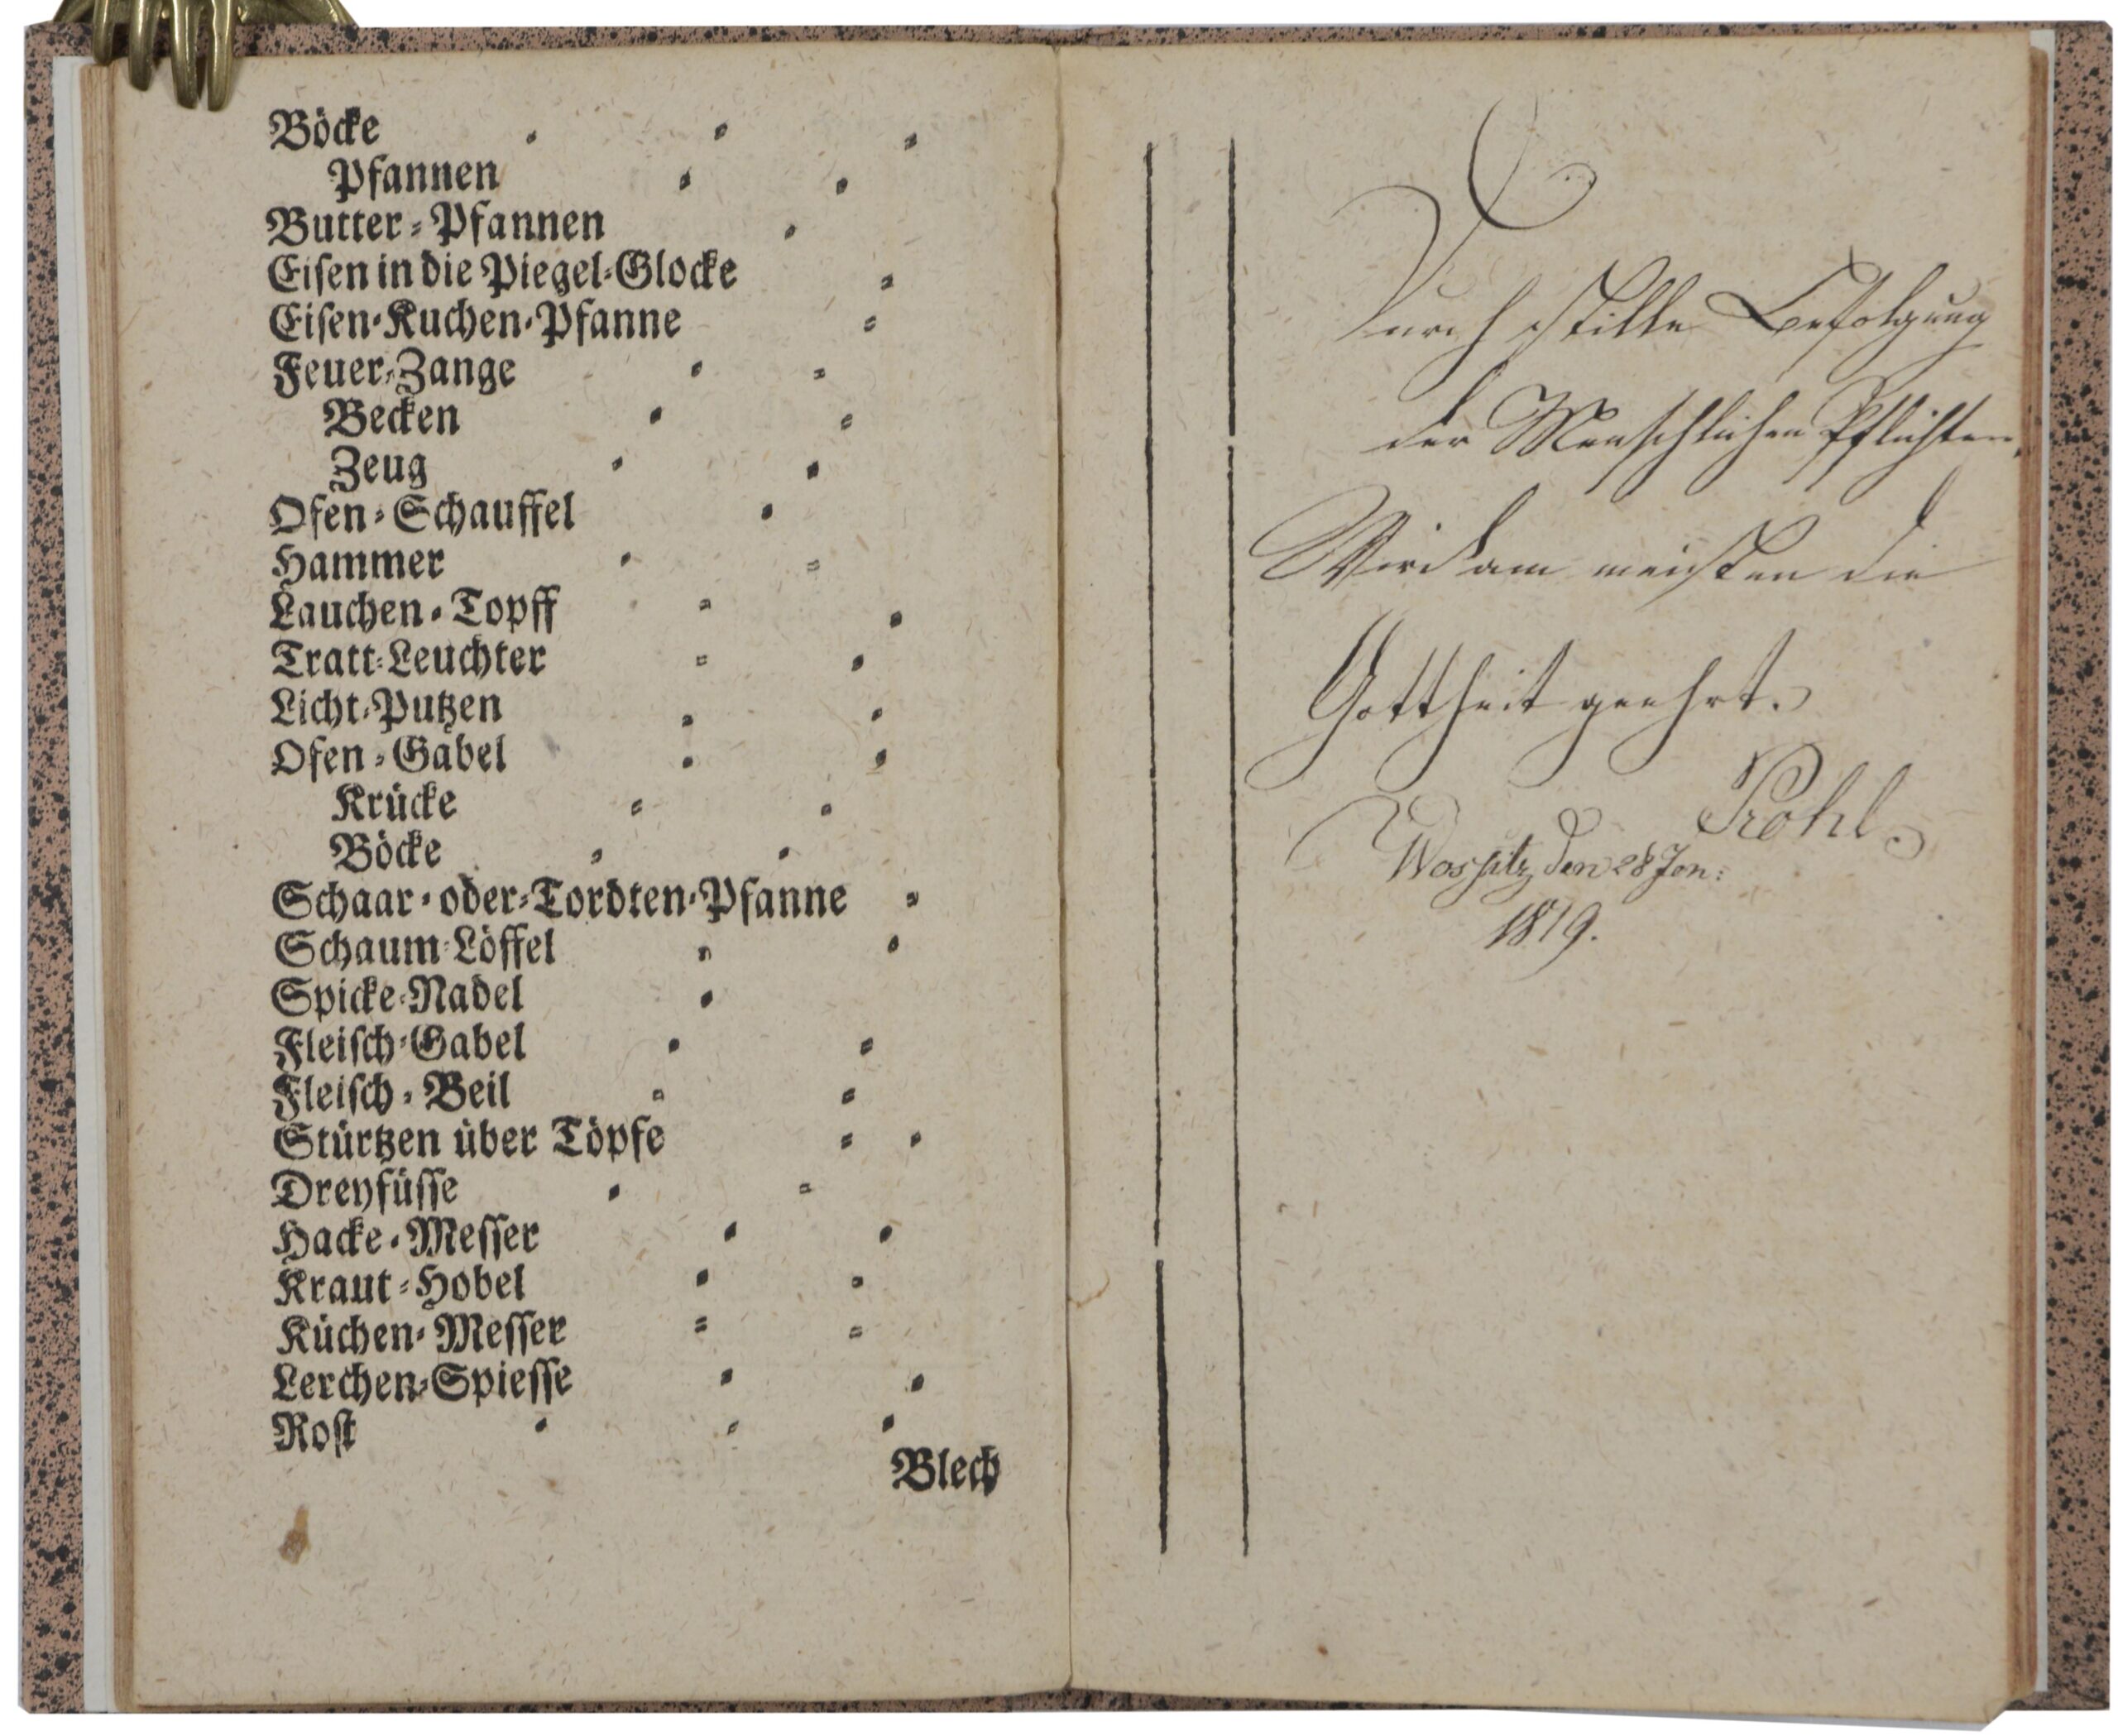 Böcke
Pfannen
Butter-Pfannen
Eisen in die Piegel-Glocke
Eisen-Kuchen-Pfanne
Feuer-Zange
Becken
Zeug
Ofen-Schauffel
Hammer
Lauchen-Topff
Tratt-Leuchter
Licht-Putzen
Ofen-Gabel
Krücke
Böcke
Schaar-oder-Tordten-Pfanne
Schaum-Löffel
Spicke-Nadel
Fleisch-Gabel
Fleisch-Beil
Stürtzen über Töpfe
Dreyfüsse
Hacke-Messer
Kraut-Hobel
Küchen-Messer
Lerchen-Spiesse
Rost
Blech
Durch stille Befolgung
der Menschlichen Pflichten,
Wird am meisten die
Gottheit geehrt.
Pröhl
Wossitz den 28 Jan:
1819.